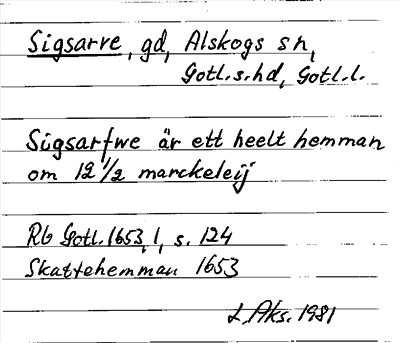 Sigsarve, gd, Alskogs sn,
Gotl.s.hd, Gotl.l.
Sigsarfwe är ett heelt hemman
om 12 1/2 marckeleij
Rb Gotl. 1653, 1, s. 124
Skattehemman 1653
L. Aks. 1981